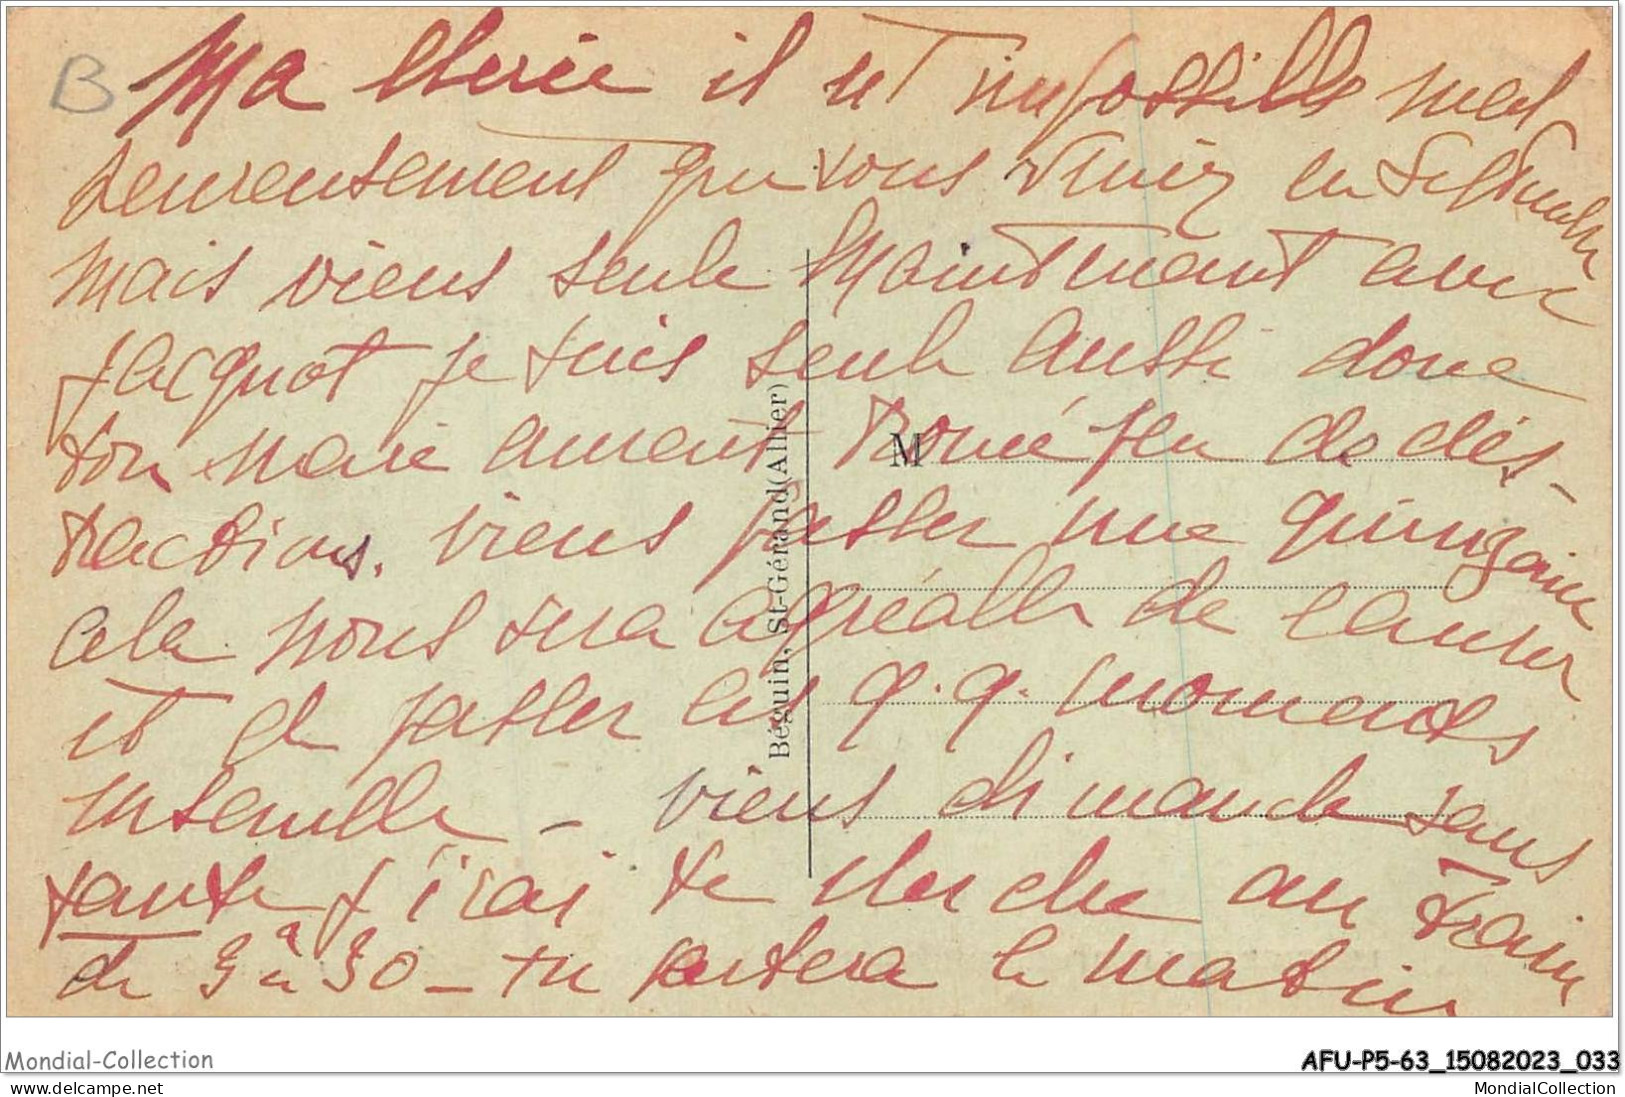 B
Ma cherie il est impossible mal
heureusement que vous veniez en Septembre
mais viens seule maintenant avec
Jacquot je suis seule aussi donc
ton mari aurait peu de dis-
tractions. viens passer une quinzaine
cela nous sera agréable de causer
et de passer les q.q. moments
ensemble - viens dimanche sans
faute j'irai te chercher au train
de 3 à 30 - tu partira le matin
M
Béguin, St-Gérand (Allier)
Mondial-Collection
AFU-P5-63_15082023_033
www.delcampe.net
MondialCollection